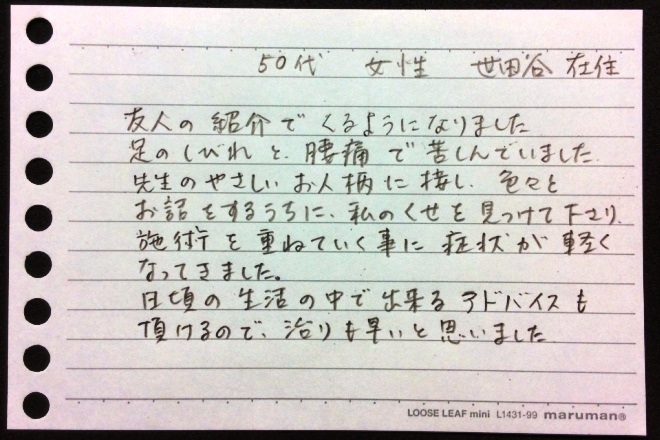 50代 女性 世田谷在住
友人の紹介でくるようになりました
足のしびれと、腰痛で苦しんでいました。
先生のやさしいお人柄に接し、色々と
お話をするうちに、私のくせを見つけて下さり、
施術を重ねていく事に症状が軽く
なってきました。
日頃の生活の中で出来るアドバイスも
頂けるので、治りも早いと思いました
LOOSE LEAF mini L1431-99 maruman®